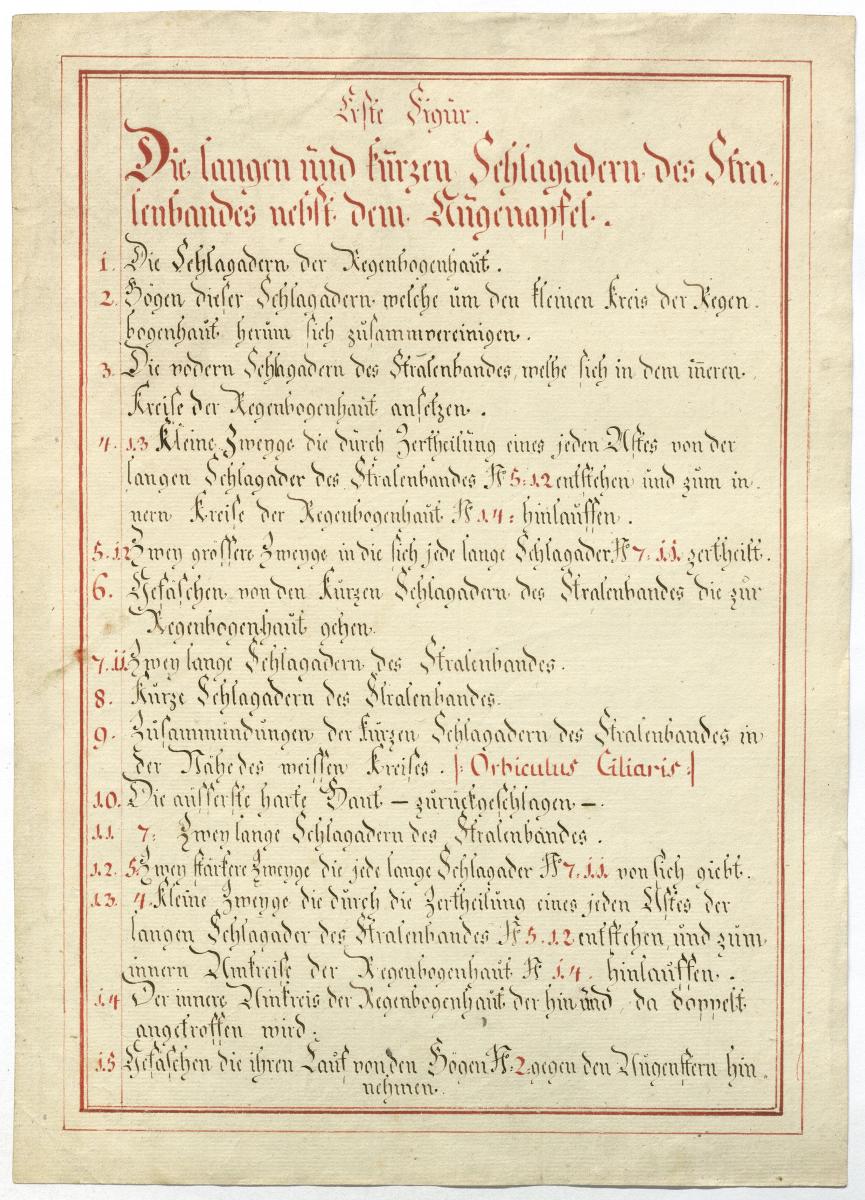 Erste Figur.
Die langen und kurzen Schlagadern des Stra-
lenbandes nebst dem Augenapfel.
1. Die Schlagadern der Regenbogenhaut.
2. Bögen dieser Schlagadern welche um den kleinen Kreis der Regen-
bogenhaut herum sich zusammvereinigen.
3. Die vodern Schlagadern des Stralenbandes, welhe sich in dem iñeren
Kreise der Regenbogenhaut ansetzen.
4. 13 Kleine Zweyge die durch Zertheilung eines jeden Astes von der
langen Schlagader des Stralenbandes N 5: 12 entstehen und zum in-
nern Kreise der Regenbogenhaut N 14: hinlauffen.
5. 12 Zwey grössere Zweyge in die sich jede lange Schlagader N 7: 11. zertheilt.
6. Gefäschen von den Kurzen Schlagadern des Stralenbandes die zur
Regenbogenhaut gehen.
7. 11 Zwey lange Schlagadern des Stralenbandes.
8. Kurze Schlagadern des Stralenbandes.
9. Zusammündungen der Kurzen Schlagadern des Stralenbandes in
der Nähe des weissen Kreises. |: Orbiculus Ciliaris :|
10. Die äusserste harte Haut – zurückgeschlagen –.
11. 7: Zwey lange Schlagadern des Stralenbandes.
12. 5: Zwey stärkere Zweyge die jede lange Schlagader N 7. 11. von sich giebt.
13. 4. Kleine Zweyge die durch die Zertheilung eines jeden Astes der
langen Schlagader des Stralenbandes N 5. 12 entstehen, und zum
innern Umkreise der Regenbogenhaut N 14. hinlauffen.
14 Der innere Umkreis der Regenbogenhaut der hin und da doppelt
angetroffen wird:
15 Gefäschen die ihren Lauf von den Bögen N: 2: gegen den Augenstern hin-
nehmen.